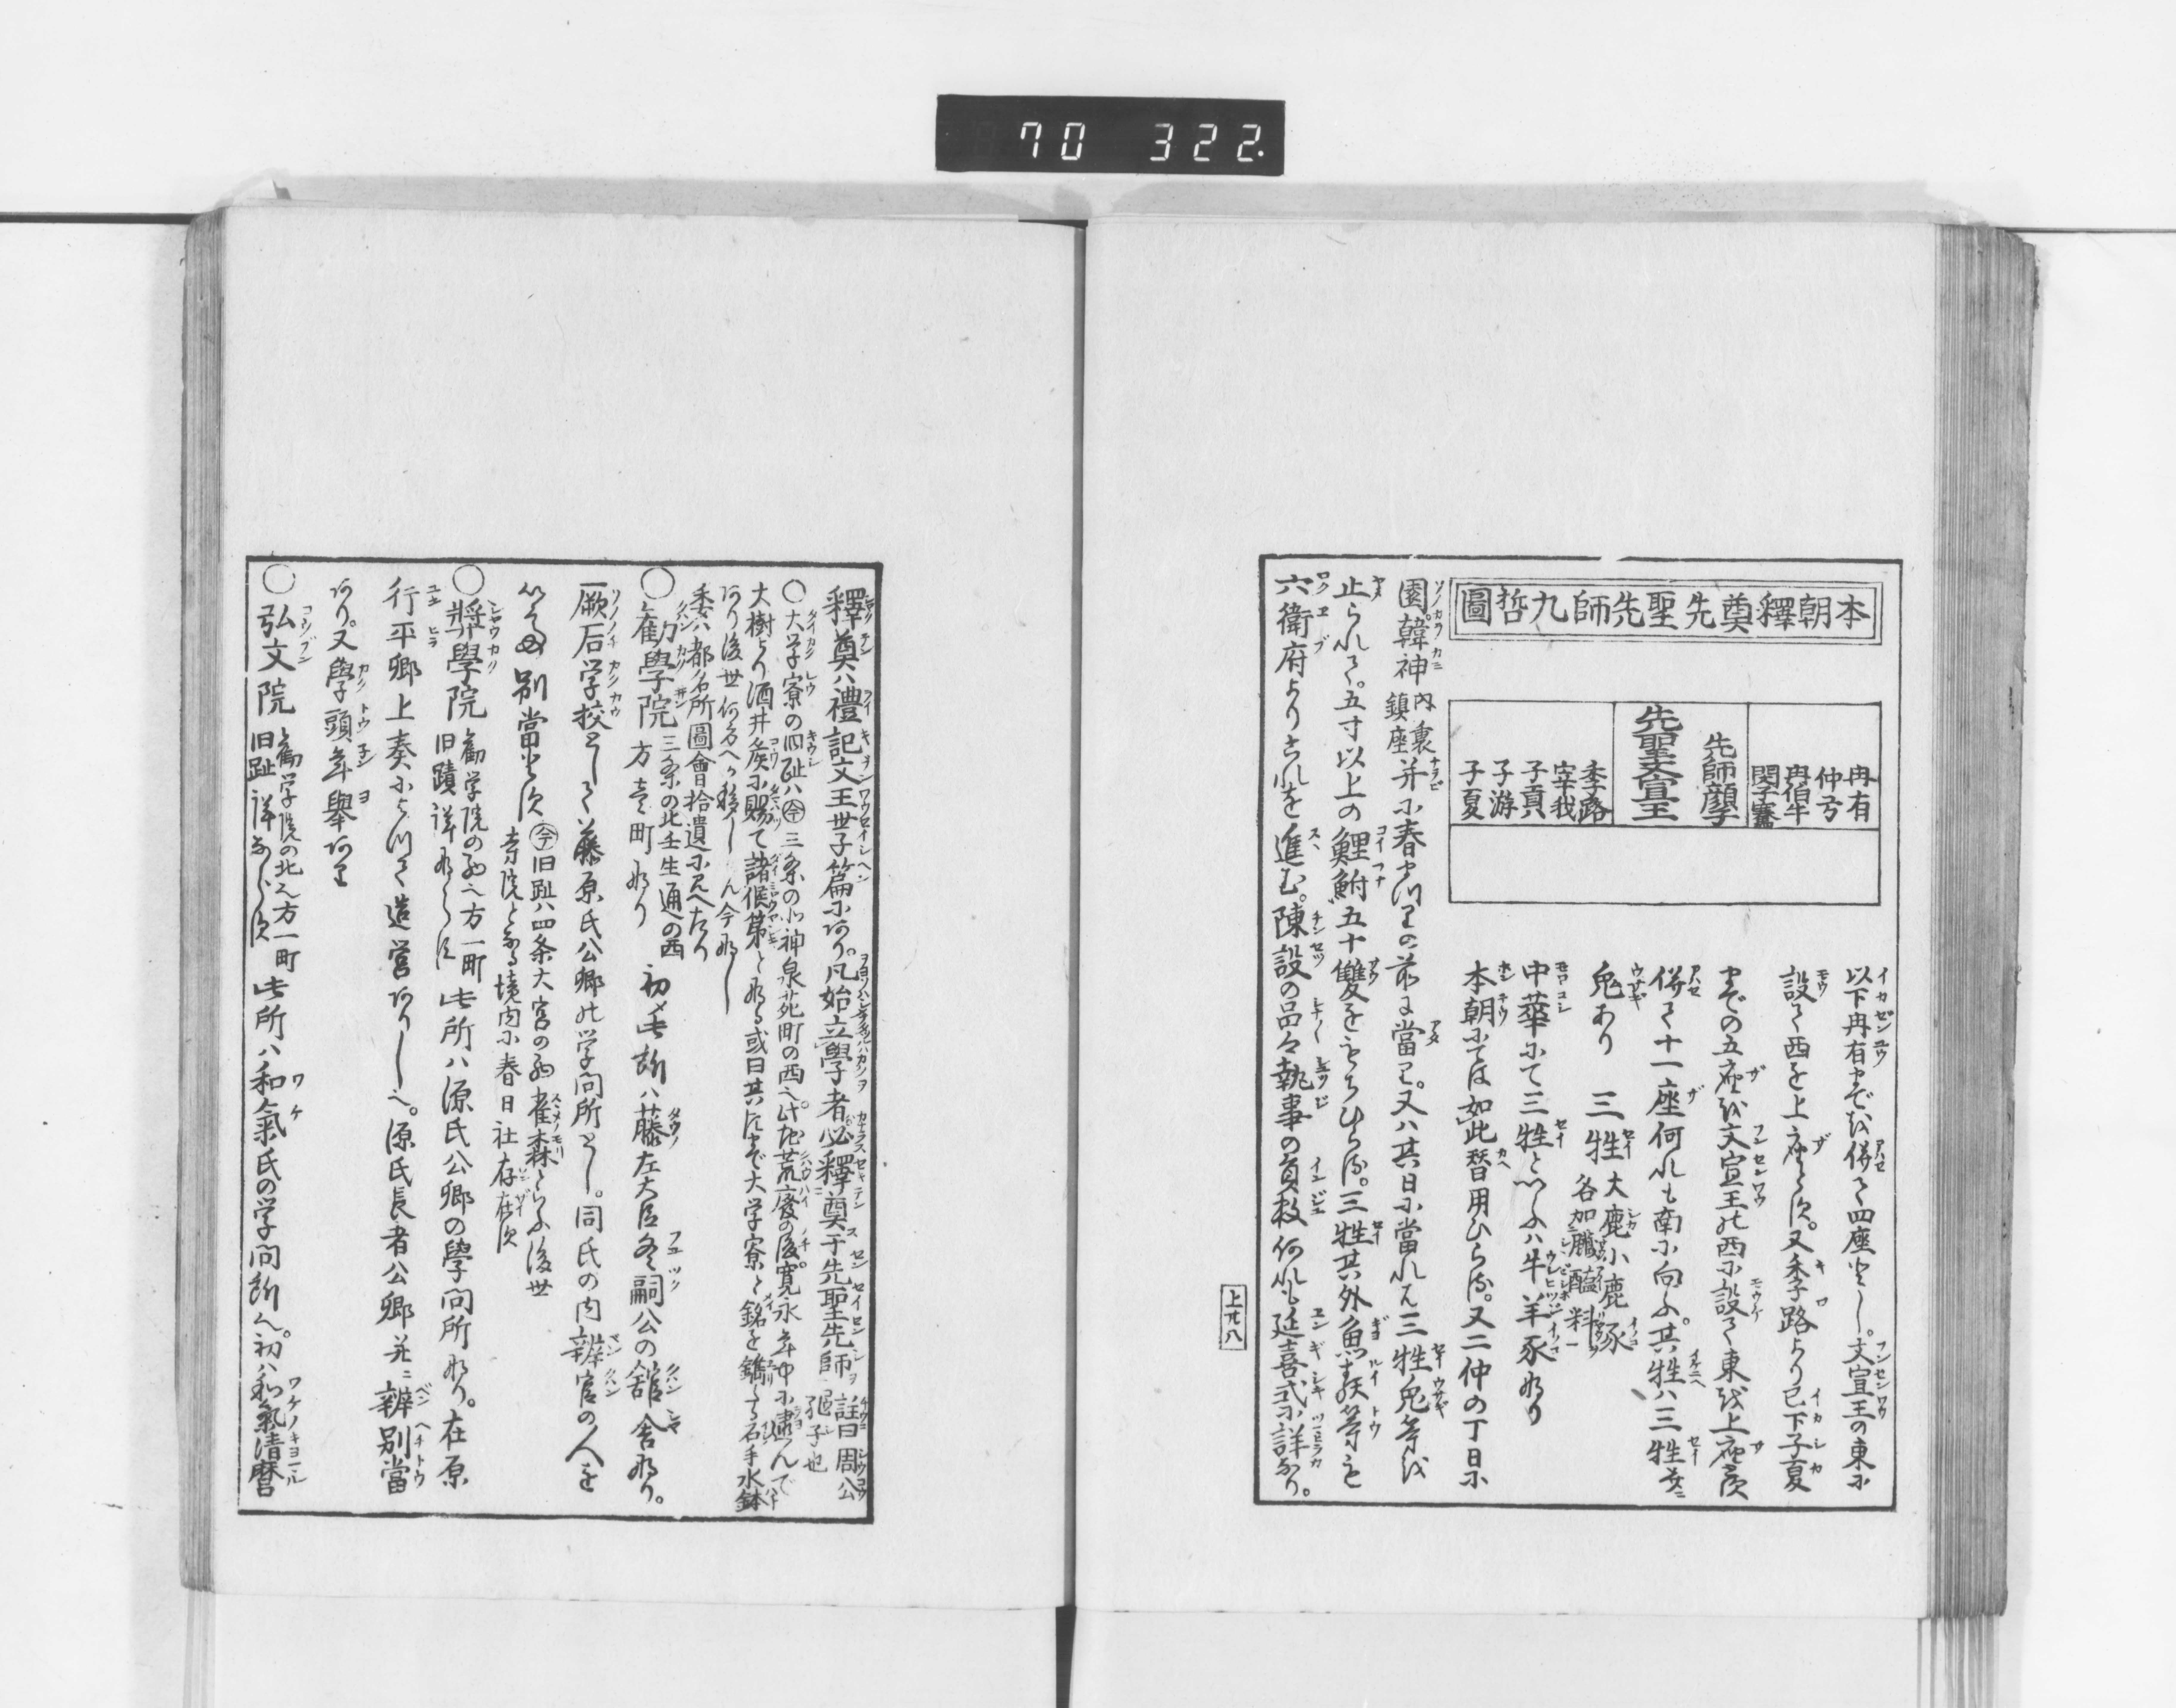 70 322.
本朝釋奠先聖先師九哲圖
冉有
仲弓
冉伯牛
閔子騫
先師顔子
先聖文宣王
季路
宰我
子貢
子游
子夏
以下冉有までを併せて四座とし。文宣王の東に
設て西を上座とす。又季路より已下子夏
までの五座を文宣王の西に設て東を上座とす
併せて十一座何れも南に向ふ。其牲ハ三牲并ニ
兎あり 三牲 大鹿小鹿豕 各加醢料
中華にて三牲といふハ牛羊豕なり
本朝にては如此替用ひらる。又二仲の丁日に
園韓神 内裏鎮座 并に春まつりの前に當り。又ハ其日に當れバ三牲兎等を
止られて。五寸以上の鯉鮒五十雙をもちひらる。三牲其外魚類等を
六衛府よりこれを進む。陳設の品々執事の員数何れも延喜式に詳なり。
上廿八
釋奠ハ禮記文王世子篇にあり。凡始立學者必釋奠于先聖先師 註曰周公孔子也
○大学寮の旧趾ハ㊂三条の北神泉苑町の西へ此地荒廢の後。寛永年中に
大樹より酒井侯に賜て諸候第となる或曰其まで大学寮と銘を鐫たる石手水鉢
あり後世何方へか移しけん今なし
委ハ都名所圖會拾遺に見へたり
○勸學院 三条の北壬生通の西方壱町なり 初メ此所ハ藤左大臣冬嗣公の舘舍なり。
厥后学挍として藤原氏公卿の学問所とし。同氏の内辨官の人を
以て 別當とす ㊂旧趾ハ四条大宮の西雀森といふ後世寺院となる境内に春日社存在す
○奨學院 勸学院の西へ方一町旧蹟詳ならず 此所ハ源氏公卿の學問所なり。在原
行平卿上奏によつて造営ありし也。源氏長者公卿并ニ辨別當
あり。又學頭年擧あり
○弘文院 勸学院の北之方一町旧趾詳ならず 此所ハ和氣氏の学問所也。初ハ和氣清麿